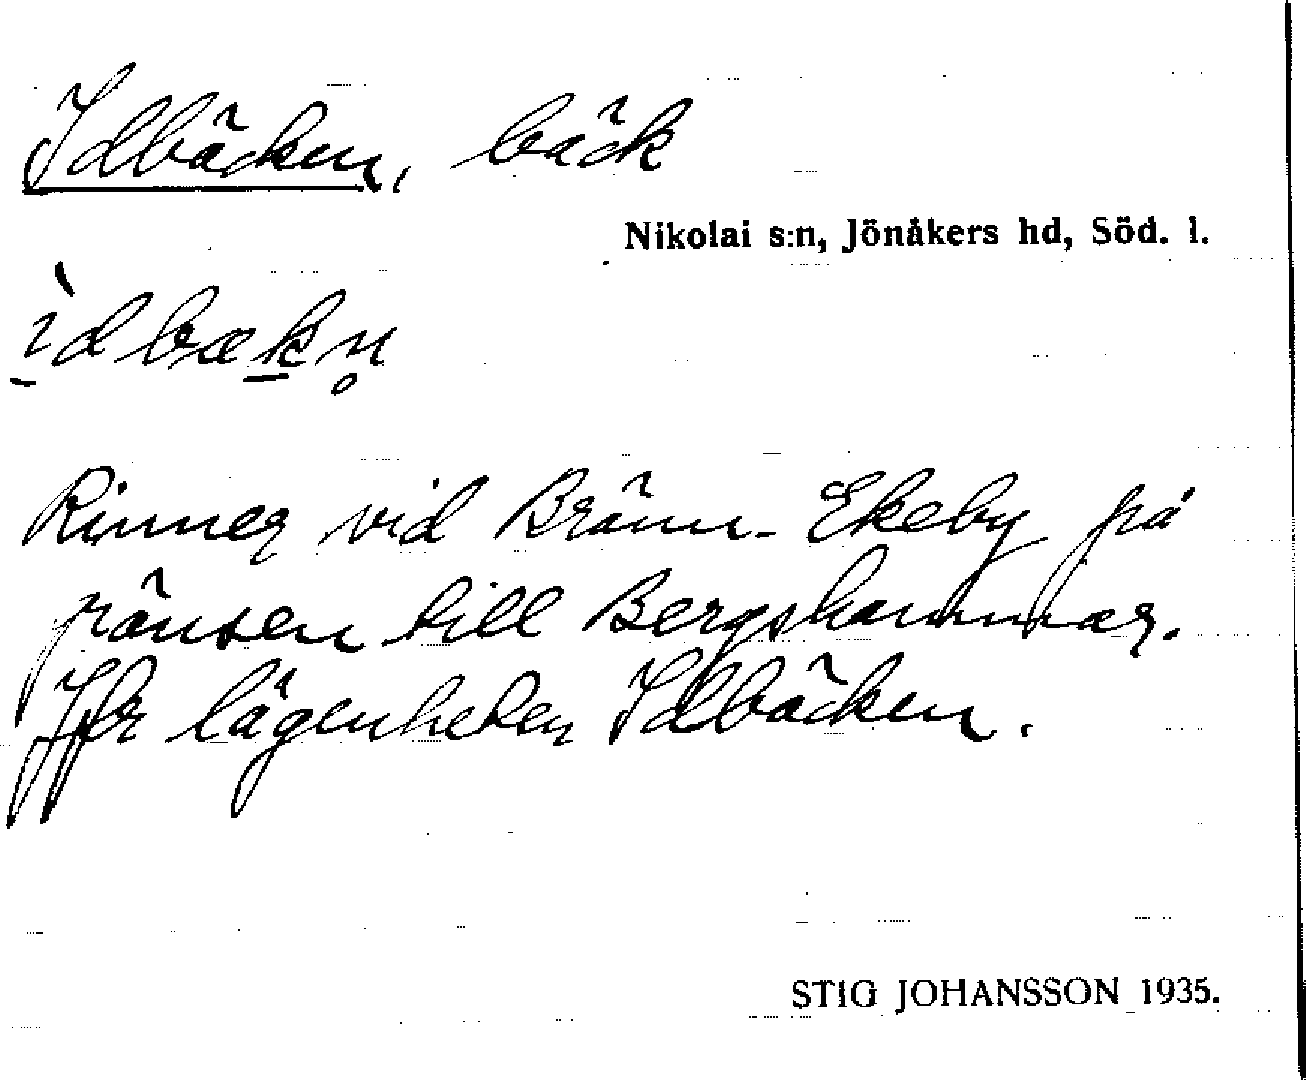 Idbäcken, bäck
Nikolai s:n, Jönåkers hd, Söd. l.
ì̱dbæḵn̥
Rinner vid Bränn-Ekeby på
gränsen till Bergshammar.
Jfr lägenheten Idbäcken.
STIG JOHANSSON 1935.